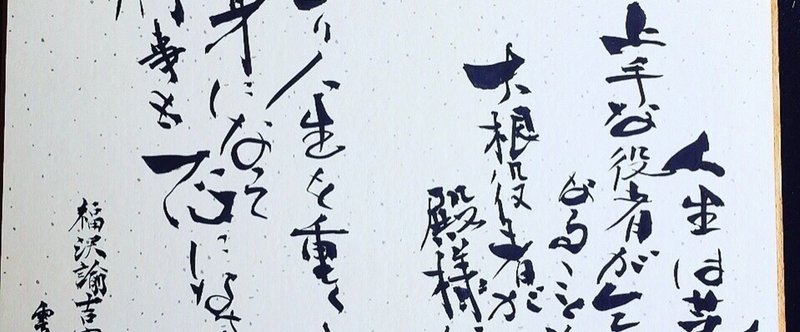 人生は芝
上手な役者が乞
なること
大根役者が
殿様
り人生を重く
身になって
何事も一心になす
福沢諭吉